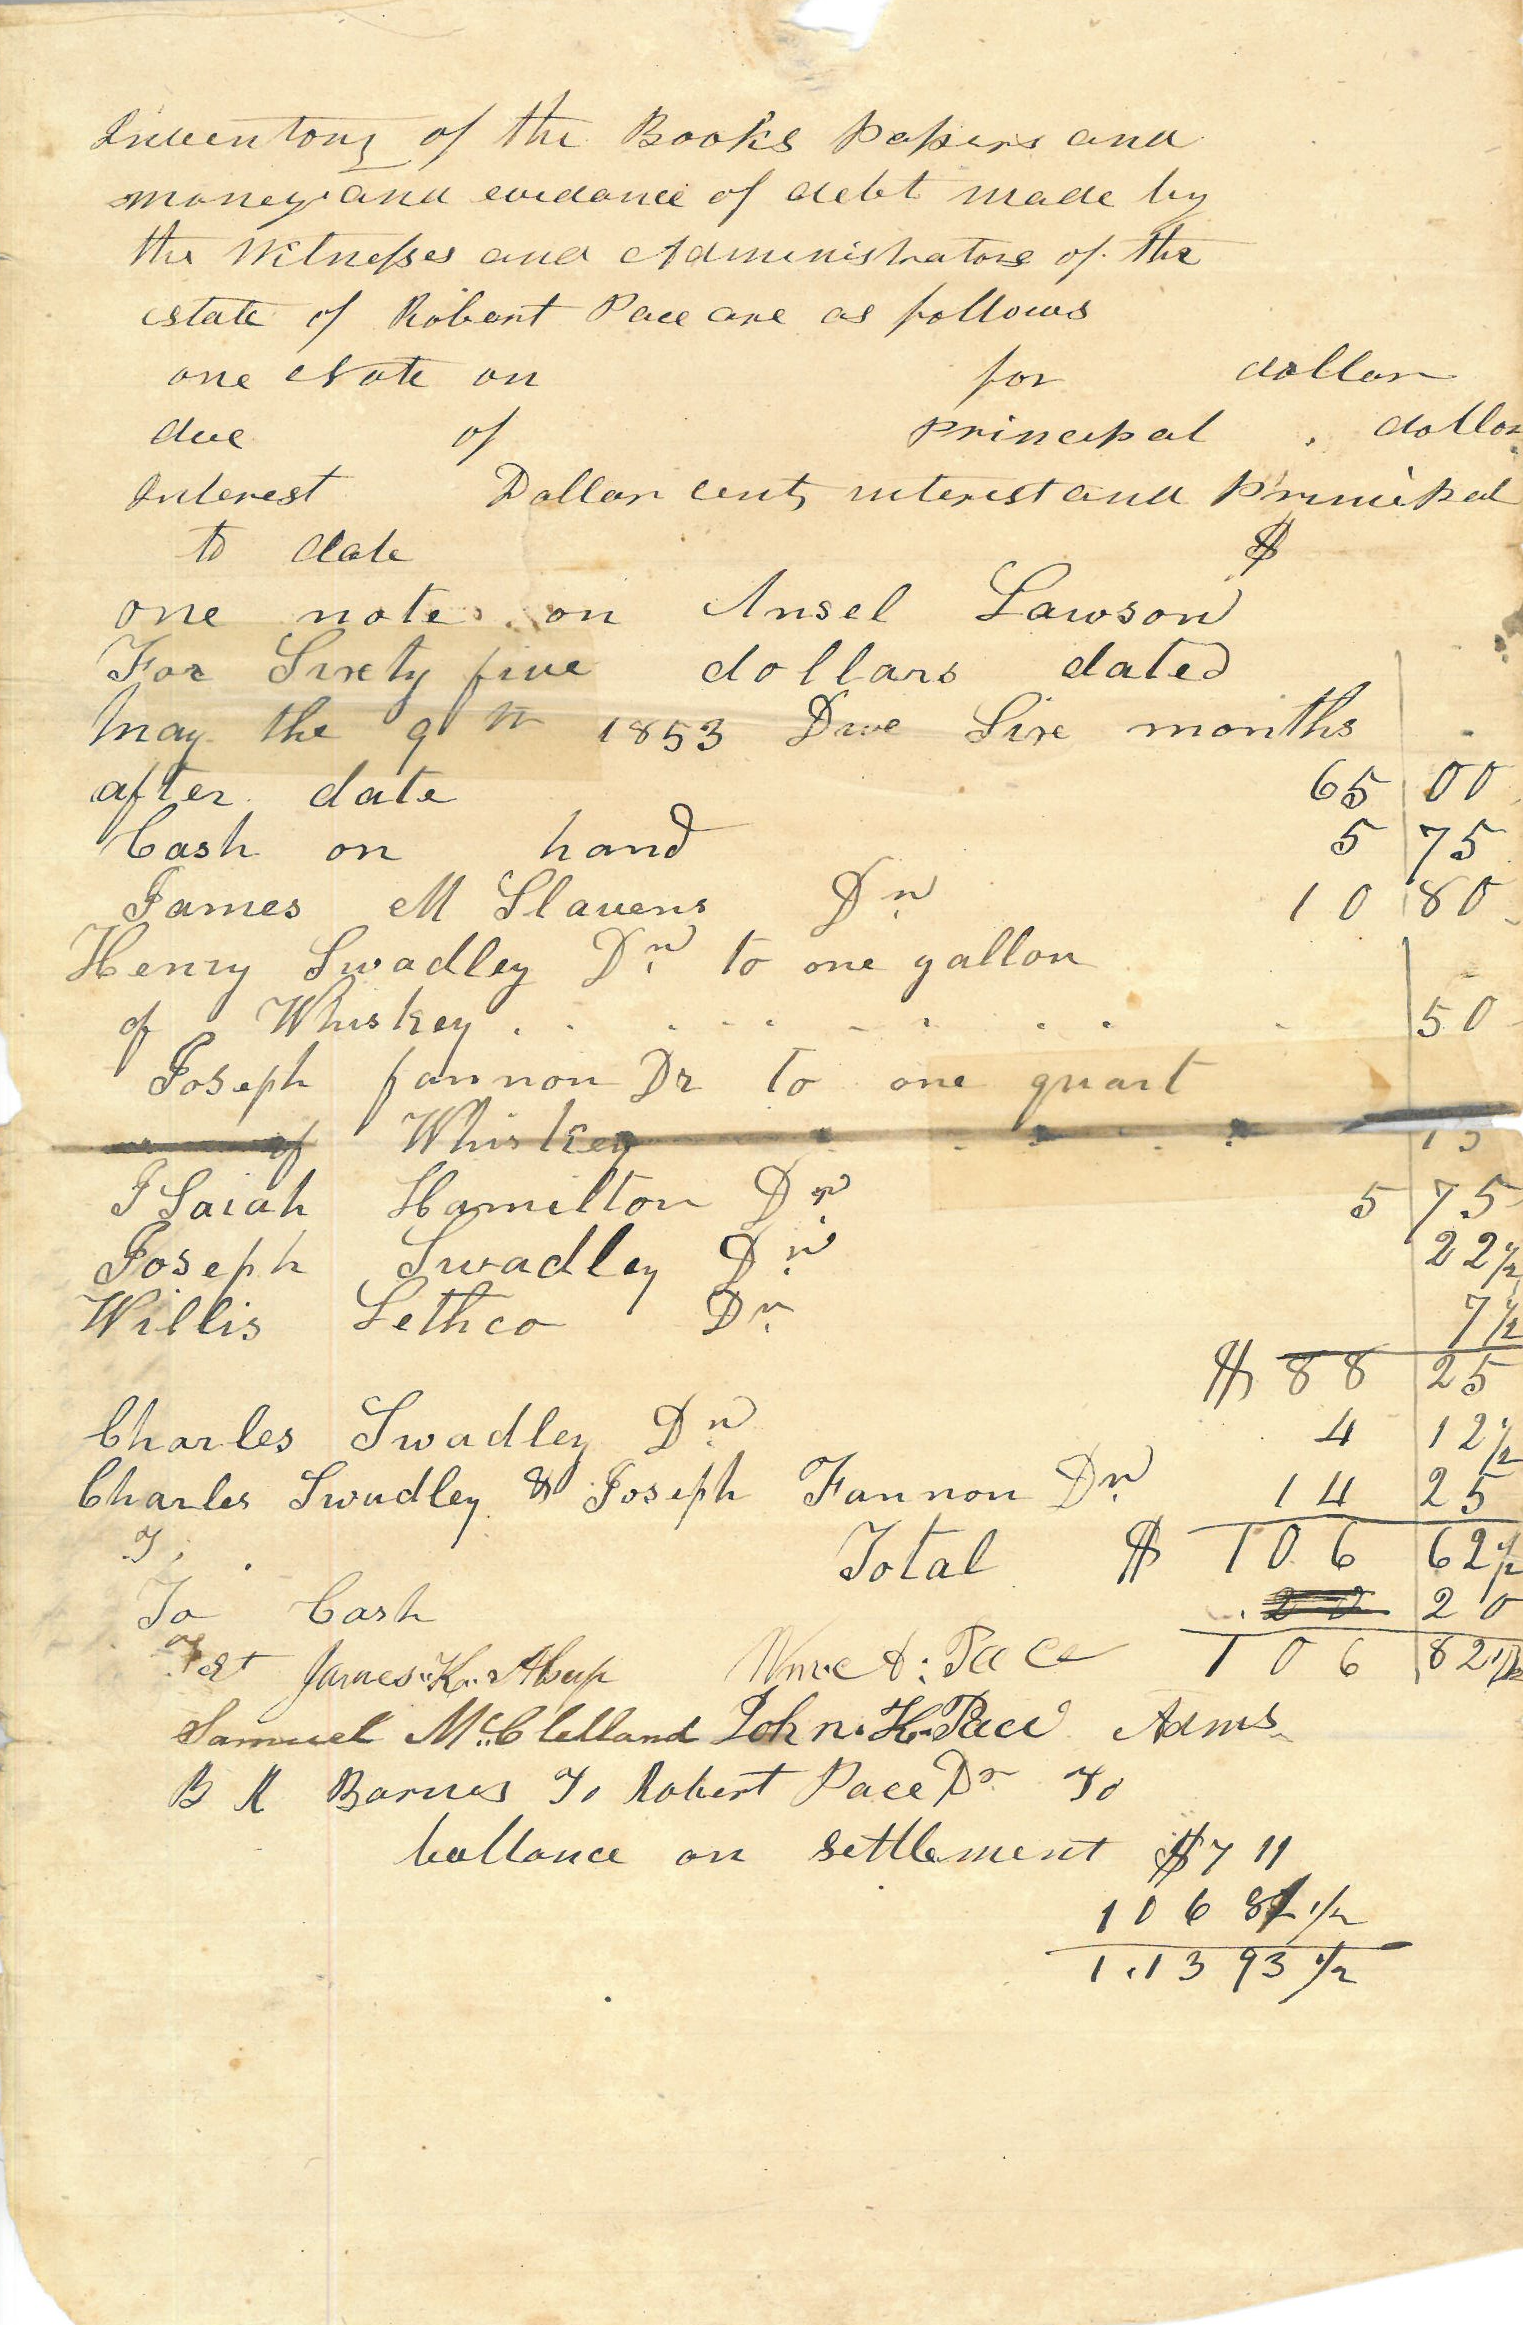 Inventory of the Books Papers and
money and evidance of debt made by
the Witnesses and Administrators of the
estate of Robert Pace are as follows
one Note on for dollar
due of principal dollar
Interest Dollar cents interest and principal
to date $
one note on Ansel Lawson
For Sixty five dollars dated
May the 9th 1853 Due Six months
after date 65 00
Cash on hand 5 75
James M Slavens Dr 10 80
Henry Swadley Dr to one gallon
of Whiskey 50
Joseph fannon Dr To one quart
of Whiskey 15
ISaiah Hamilton Dr 5 75
Joseph Swadley Dr 22 1/2
Willis Lethco Dr 7 1/2
$ 88 25
Charles Swadley Dr 4 12 1/2
Charles Swadley & Joseph Fannon Dr 14 25
T Total $ 106 62 1/2
To Cash 20
106 82 1/2
James K Alsup Pace
Samuel McClelland John K Pace Adms
B R Barnes To Robert Pace Dr To
ballance on settlement $7 11
106 82 1/2
113 93 1/2